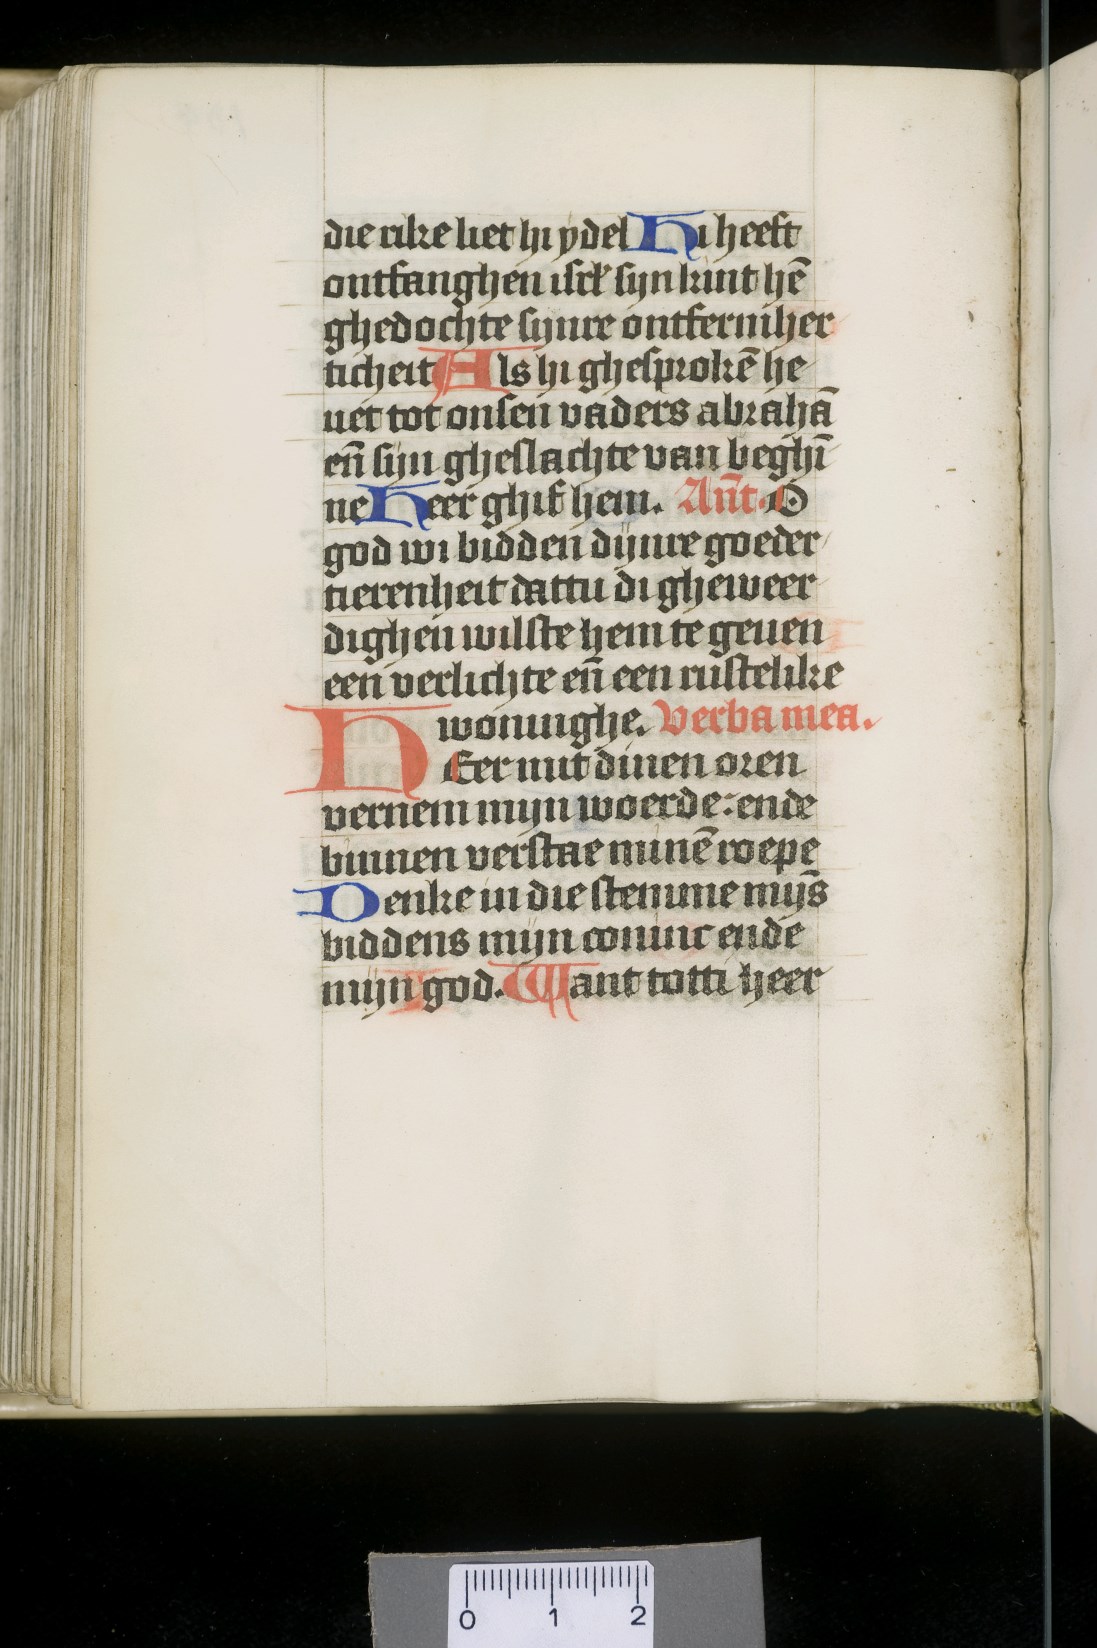 die rike liet hi ydel Hi heeft
ontfanghen isrl' syn kint hē
ghedochte synre ontfermher
ticheit Als hi ghesprokē he
uet tot onsen vaders abrahā
eñ syn gheslachte van beghī
ne Heer ghif hem. Añt. O
god wi bidden dynre goeder
tierenheit dattu di gheweer
dighen wilste hem te geuen
een verlichte eñ een rustelike
woninghe. Verba mea.
HEer mit dinen oren
vernem mijn woerde: ende
binnen verstae minē roepe
Denke in die stemme mijs̄
biddens mijn coninc ende
mijn god. Want totti heer
0 1 2